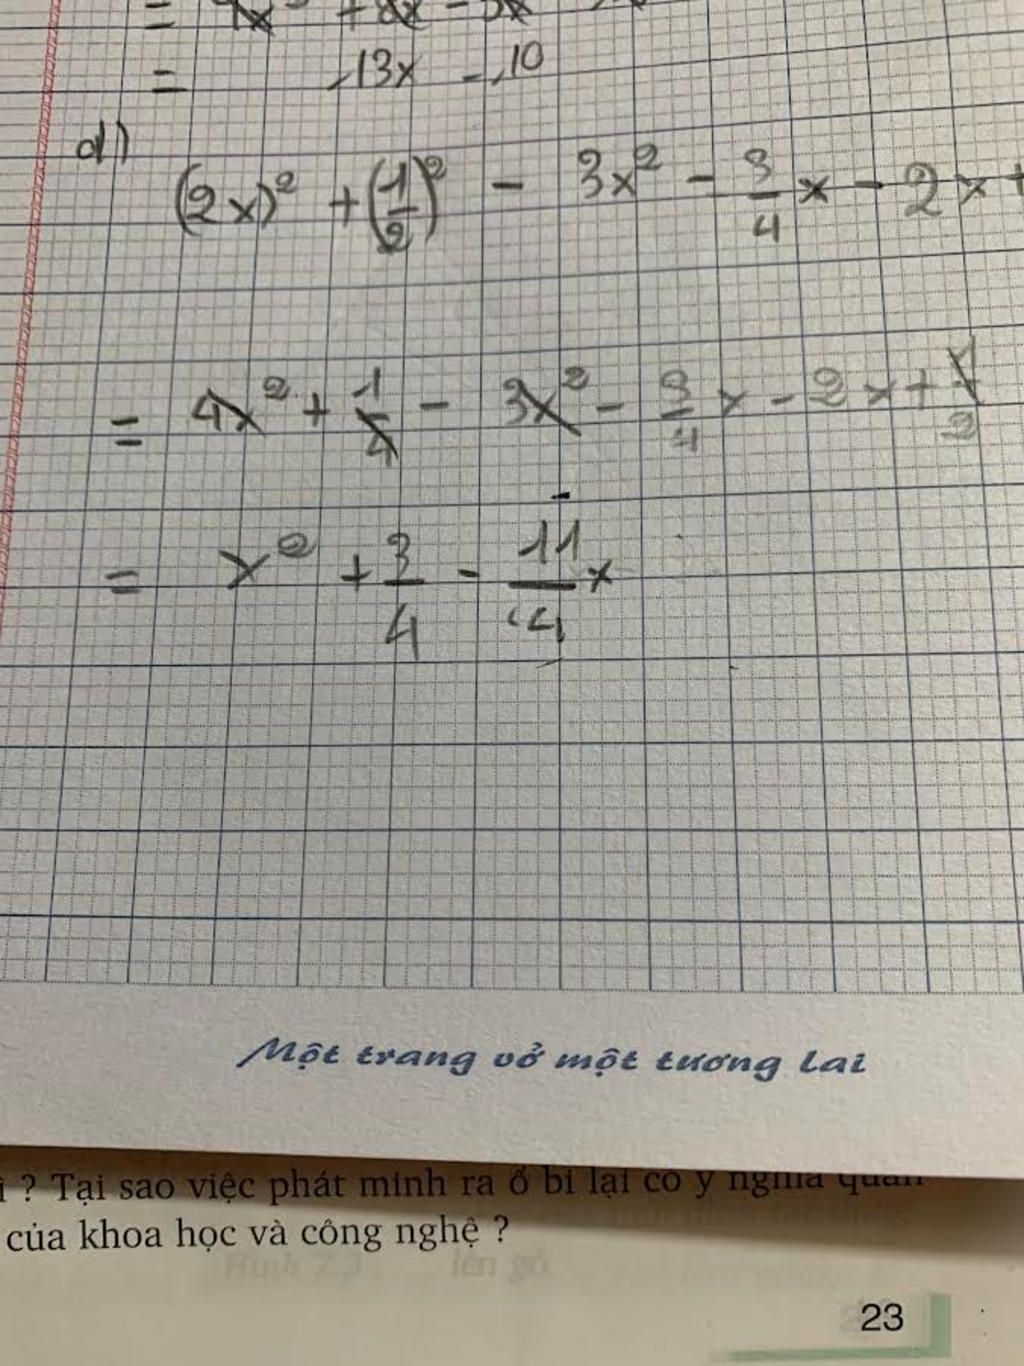 = 4x² + 8x - 5x
= -13x - 10
d)
(2x)² + (1/2)² - 3x² - 3/4 x - 2x +
= 4x² + 1/4 - 3x² - 3/4 x - 2x + 1/2
= x² + 3/4 - 11/4 x
Một trang vở một tương lai
? Tại sao việc phát minh ra ổ bi lại có ý nghĩa quan
của khoa học và công nghệ ?
23